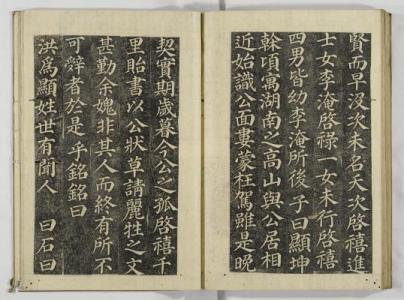 賢而早沒次未名夭次啓禧進
士女李淹啓祿一女未行啓禧
四男皆幼李淹所後子曰顯坤
榦頃寓湖南之高山與公居相
近始識公面屢蒙枉駕雖是晚
契實期歲暮今公之孤啓禧千
里貽書以公狀草請麗牲之文
甚勤余媿非其人而終有所不
可辭者於是乎銘銘曰
洪爲顯姓世有聞人 曰石曰